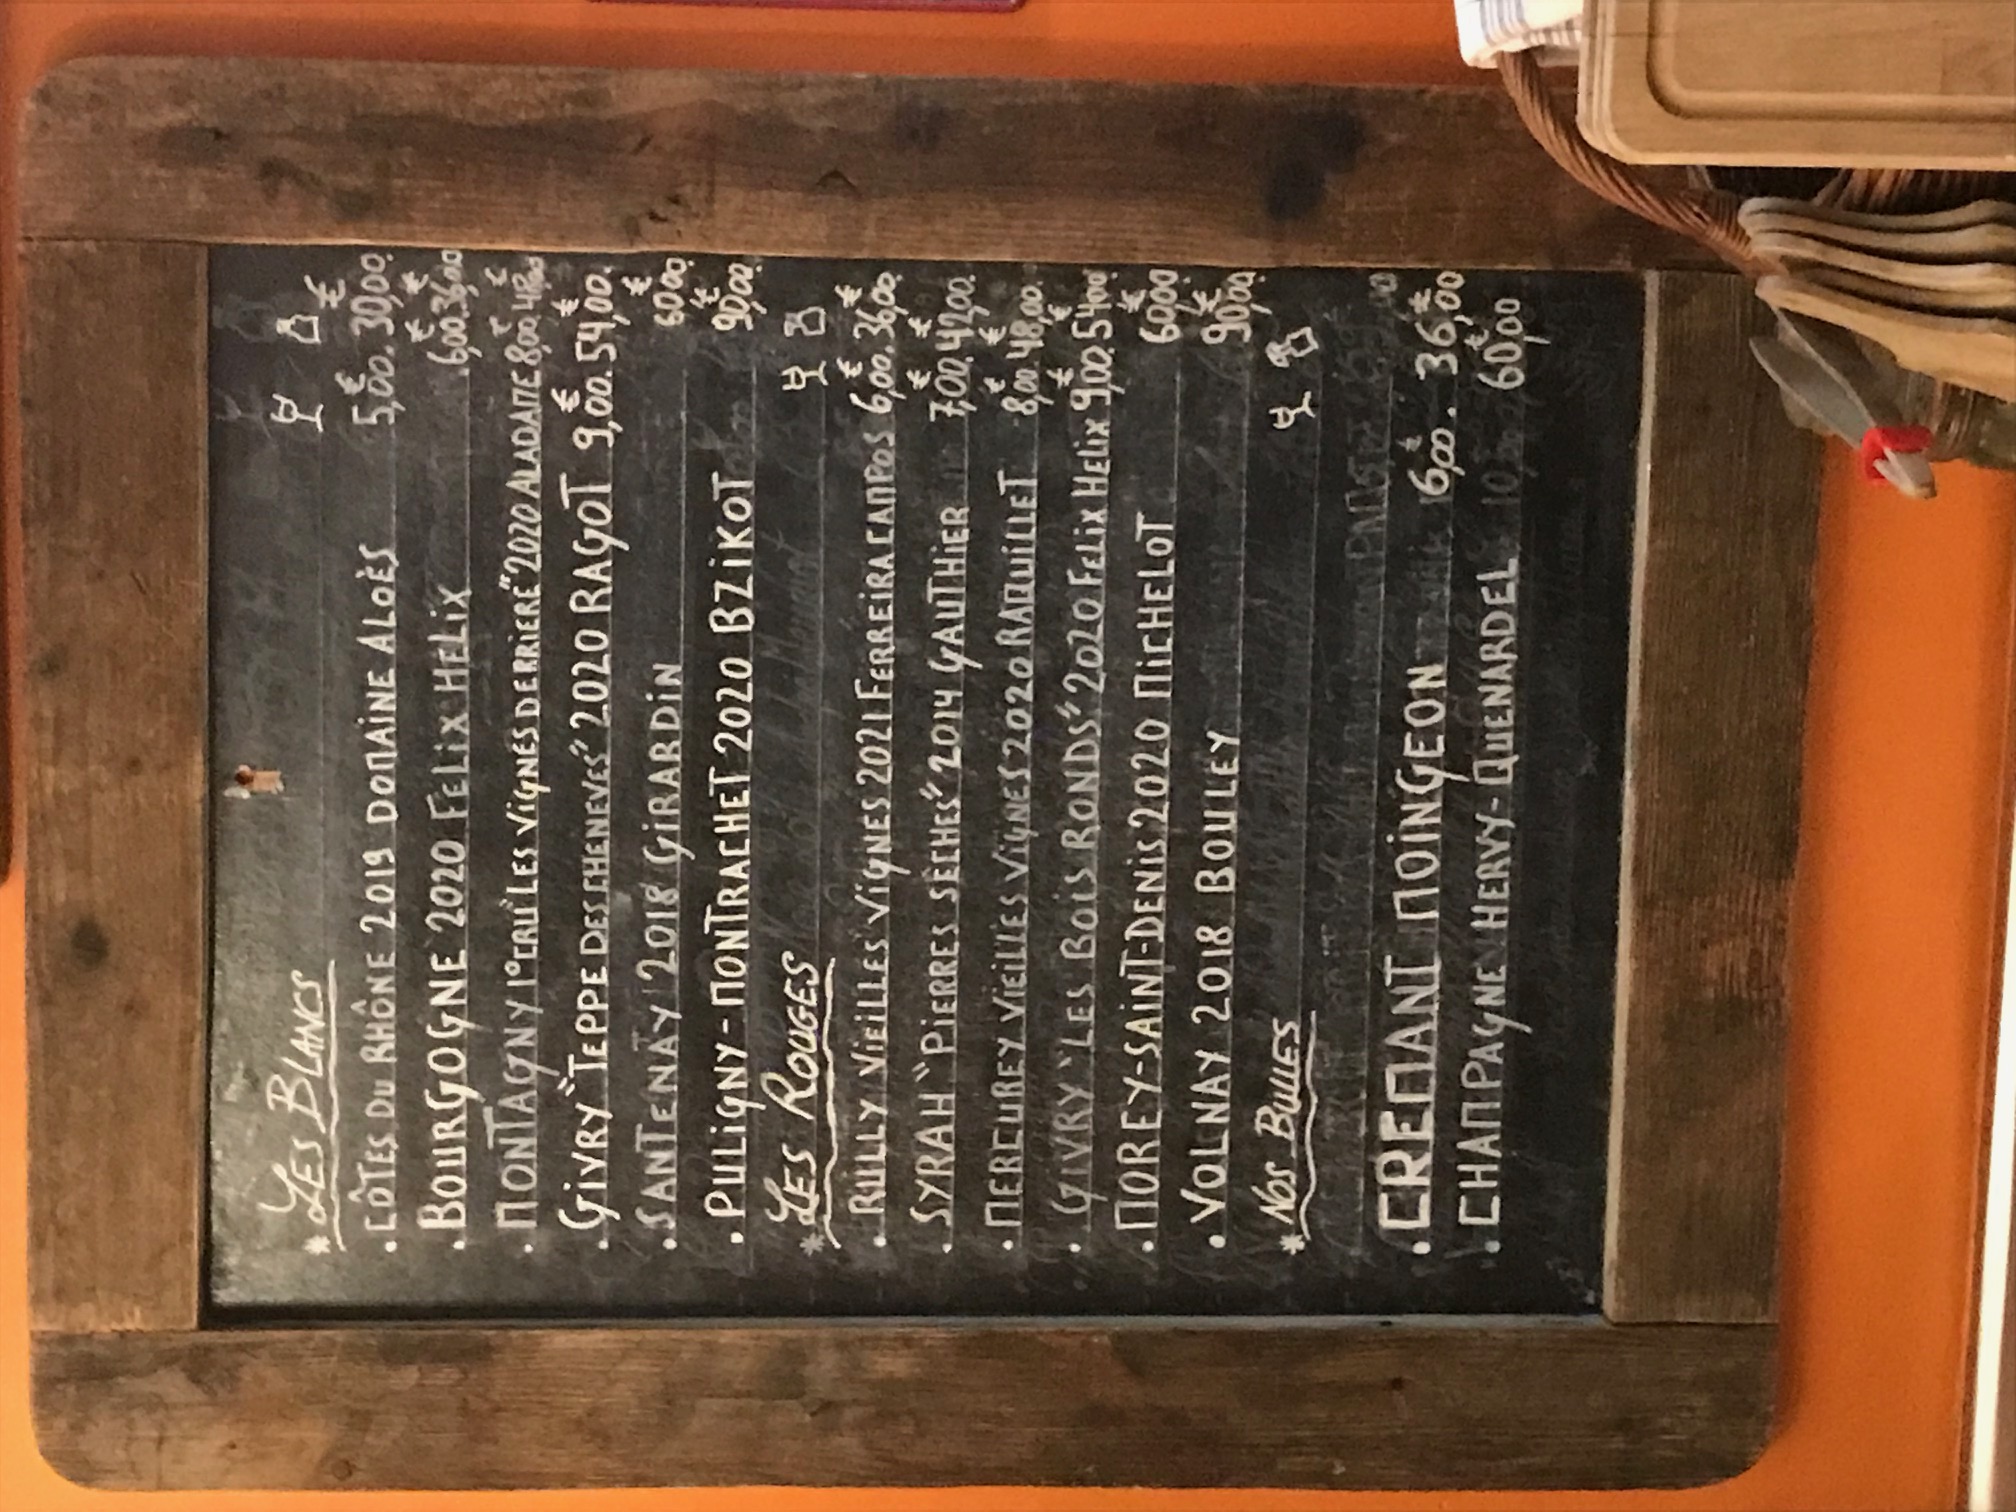 * Les Blancs
• Côtes du Rhône 2019 Domaine Aloès 5,00€. 30,00€.
• Bourgogne 2020 Felix Helix 6,00€. 36,00€
• Montagny 1er cru "Les Vignes Derrière" 2020 Aladame 8,00€ 48,00€
• Givry "Teppe des Cheneves" 2020 Ragot 9,00€. 54,00€.
• Santenay 2018 Girardin 60,00€.
• Puligny-Montrachet 2020 Bzikot 90,00€.
* Les Rouges
• Rully Vieilles Vignes 2021 Ferreira Campos 6,00€. 36,00€.
• Syrah "Pierres Sèches" 2014 Gauthier 7,00€. 42,00€.
• Mercurey Vieilles Vignes 2020 Raquillet 8,00€. 48,00€.
• Givry "Les Bois Ronds" 2020 Felix Helix 9,00€. 54,00€
• Morey-Saint-Denis 2020 Michelot 60,00€
• Volnay 2018 Boulley 90,00€.
* Nos Bulles
• Cremant Moingeon 6,00€. 36,00€
• Champagne Hervy-Quenardel 60,00€